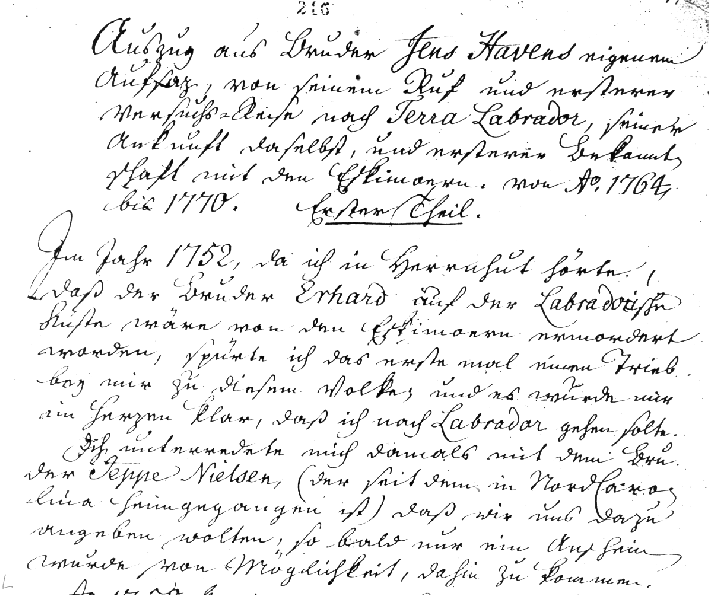 216
Auszug aus Bruder Jens Havens eigenem
Aufsaz, von seinem Ruf und ersterer
Versuchs-Reise nach Terra Labrador, seiner
Ankunft daselbst, und ersterer Bekannt,
schaft mit den Eskimoern. von Ao. 1764,
bis 1770. Erster Theil.
Im Jahr 1752, da ich in Herrnhut hörte,
daß der Bruder Erhard auf der Labradorische
Küste wäre von den Eskimoern ermordert
worden, spürte ich das erste mal einen Trieb
bey mir zu diesem Volke, und es wurde mir
im Herzen klar, daß ich nach Labrador gehen solte.
Ich unterredete mich damals mit dem Bru
der Seppe Nielsen, (der seit dem in Nord Caro,
lina heimgegangen ist) daß wir uns dazu
angeben wolten, so bald nur ein Anschein
wurde von Möglichkeit, dahin zu kommen.